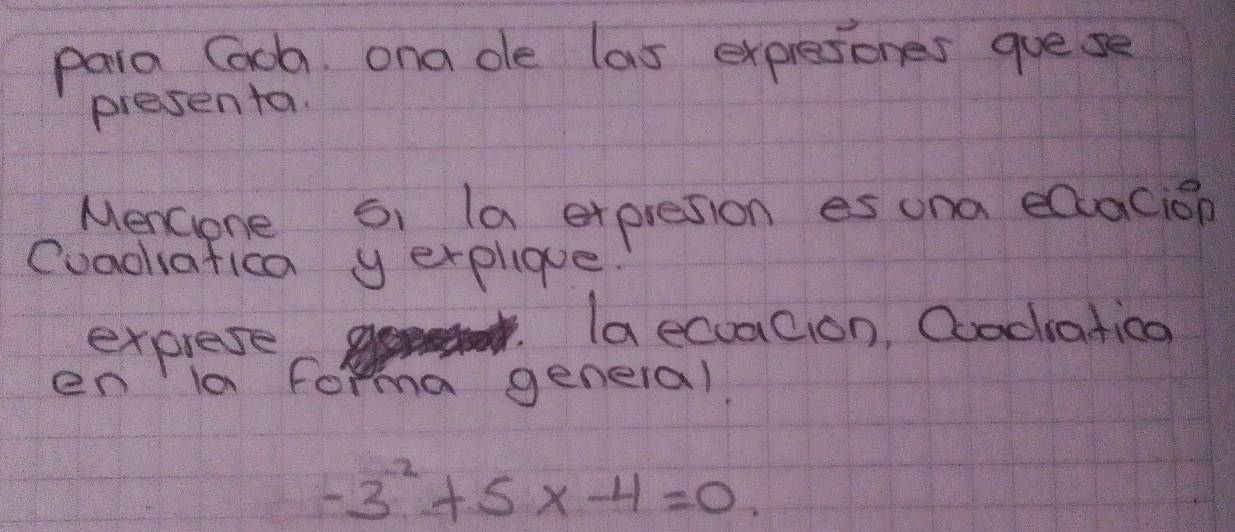 para Cada. una de las expresiones que se
presenta.
Mencione Si la expresion es una ecuación
Cuadratica y explique.
exprese la ecuacion, Cuadratica
en la forma general.
-3² + 5x - 4 = 0.